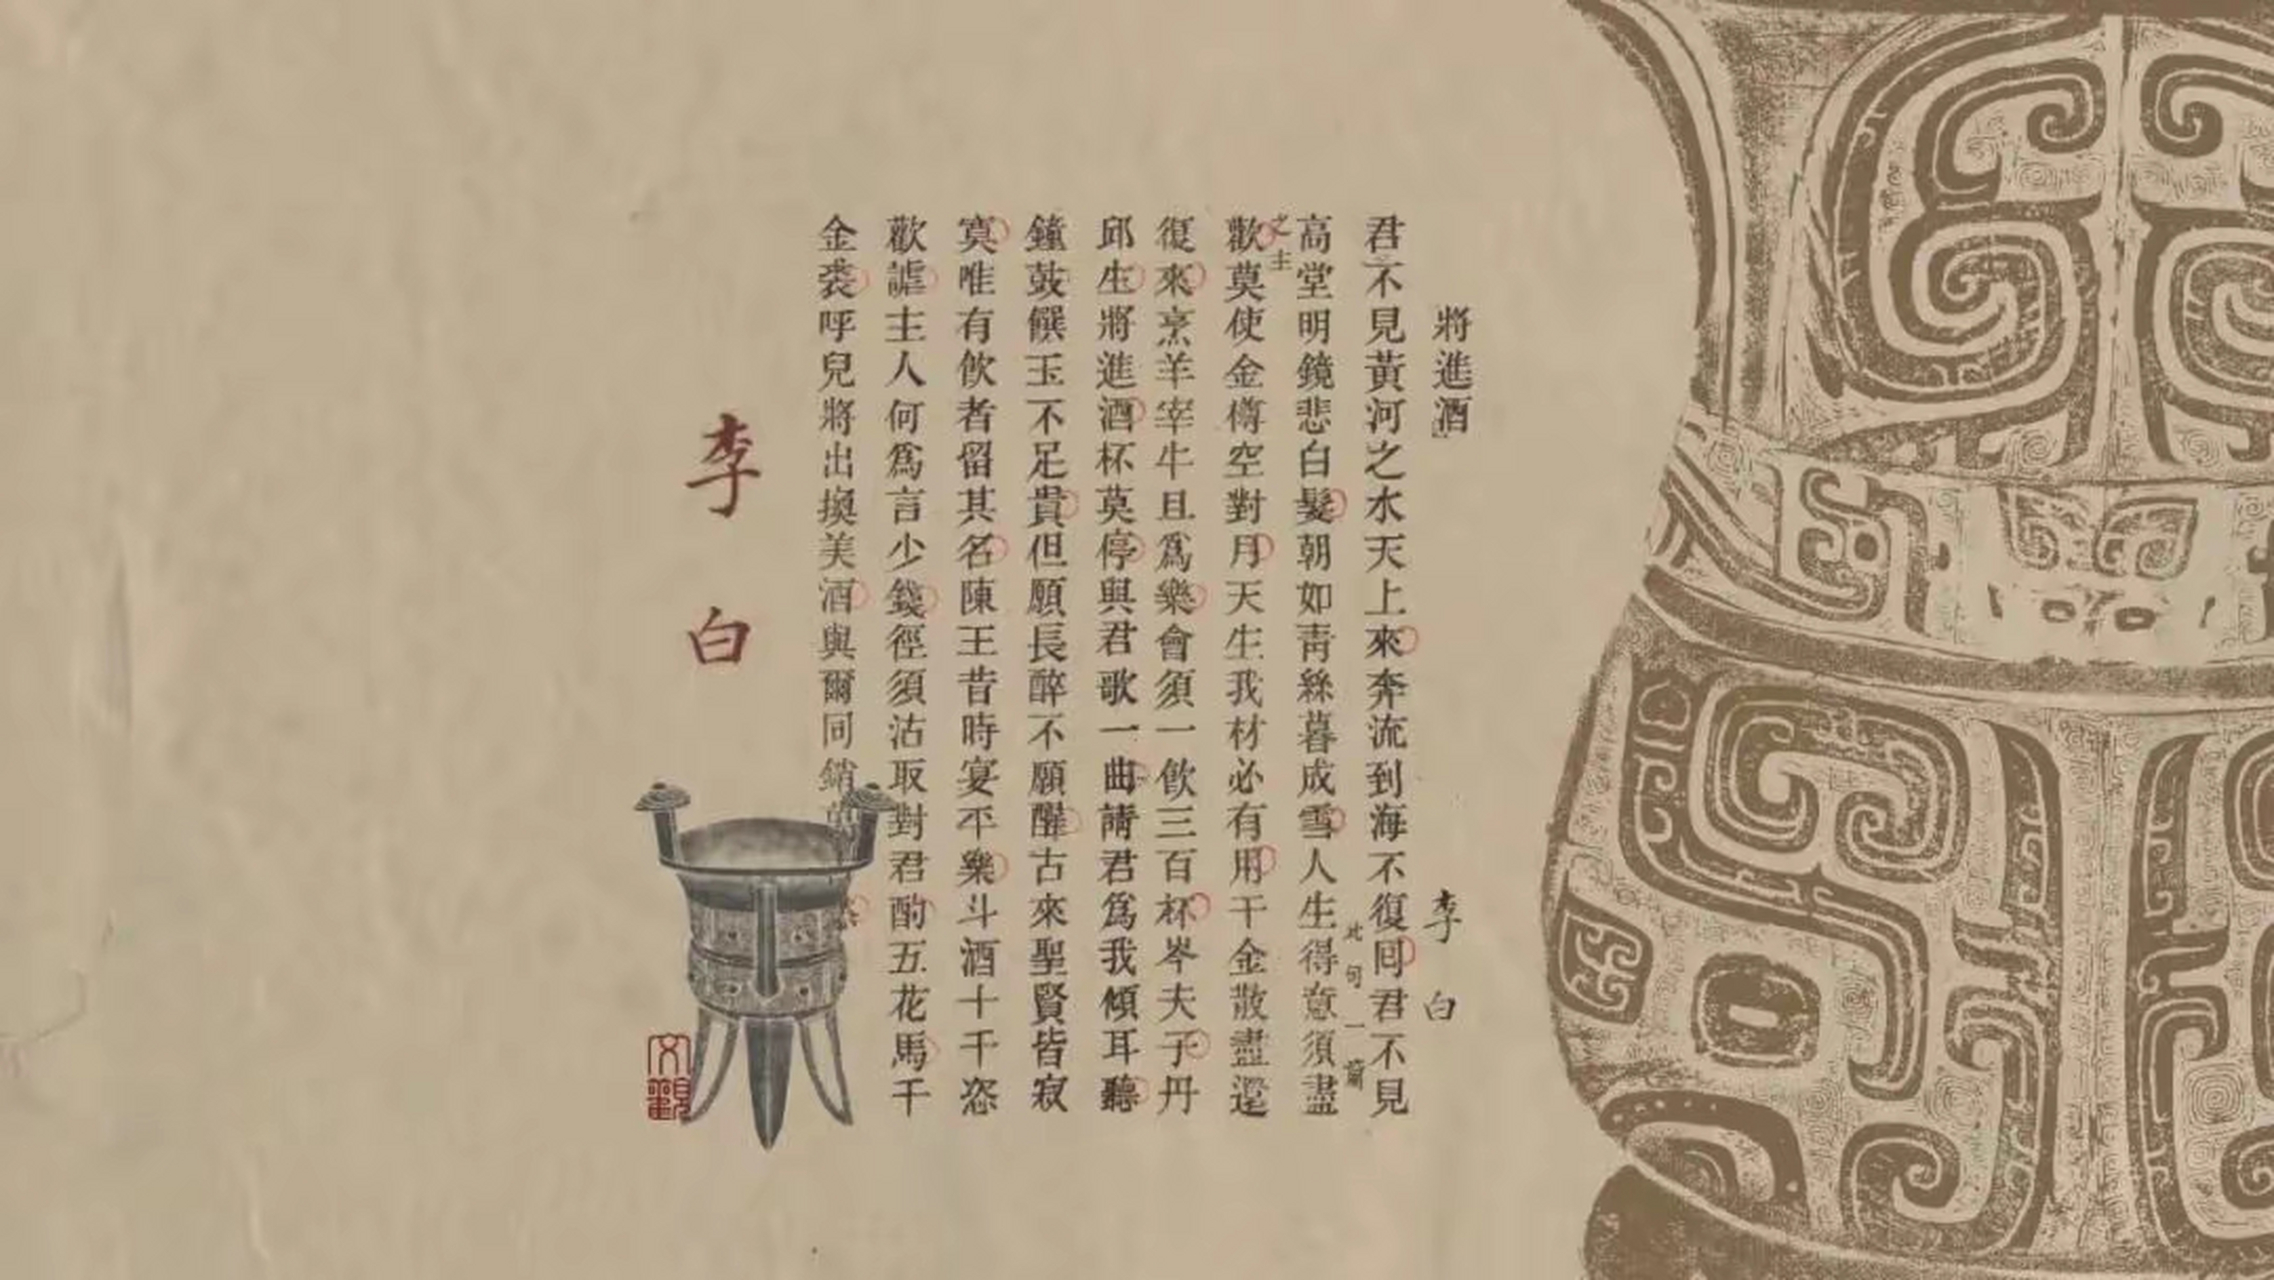 將進酒
李白
君不見黃河之水天上來奔流到海不復回君不見
此句一篇
高堂明鏡悲白髮朝如青絲暮成雪人生得意須盡
之主
歡莫使金樽空對月天生我材必有用千金散盡還
復來烹羊宰牛且爲樂會須一飲三百杯岑夫子丹
邱生將進酒杯莫停與君歌一曲請君爲我傾耳聽
鐘鼓饌玉不足貴但願長醉不願醒古來聖賢皆寂
寞唯有飲者留其名陳王昔時宴平樂斗酒十千恣
歡謔主人何爲言少錢徑須沽取對君酌五花馬千
金裘呼兒將出換美酒與爾同銷
李白
文觀